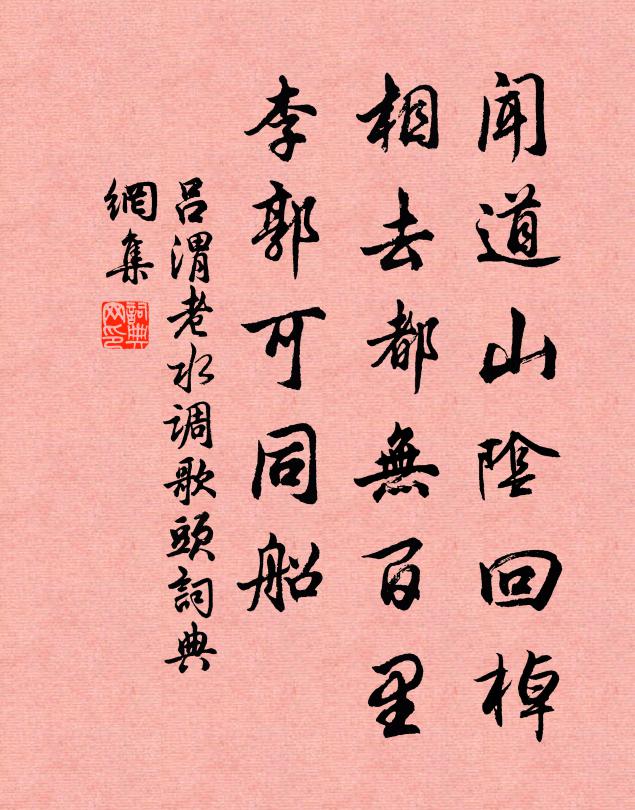 聞道山陰回棹
相去都無百里
李郭可同船
吕渭老水调歌頭詞典
網集
詞典网印